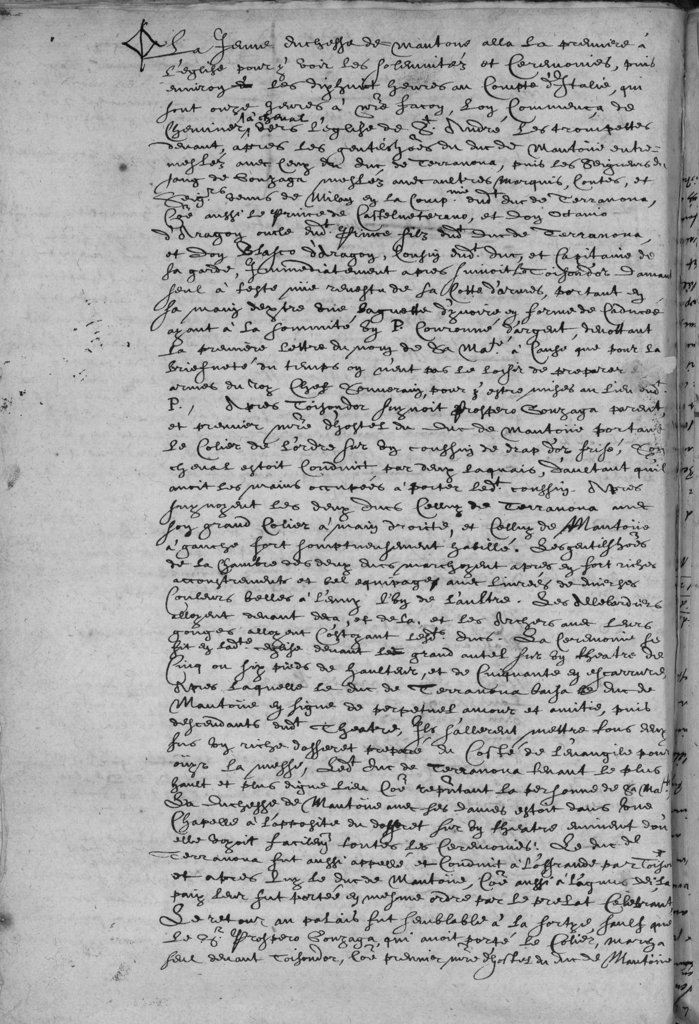 La Jeune duchesse de Mantoue alla la premiere à
l'eglise pour y voir les solemnitez et Ceremonies, puis
environ les dixhuict heures au Compte d'Italie, qui
sont onze heures à nre facon, lon Commenca de
Cheminer à cheval vers l'eglise de St Andre. Les trompettes
devant, apres les gentilshões du duc de Mantoue entre
meslez avec Ceux du duc de Terranova, puis les Seigneurs du
sang de Gonzaga meslez avec aultres Marquis, Contes, et
Seigrs venus de Milan en la Compnie dudt duc de Terranova,
Cõe aussi le Prince de Castelveterano, et don Octavio
d'Aragon oncle dudt Prince filz dudt duc de Terranova,
et don Blasco d'Aragon, Cousin dudt duc, et Capitaine de
sa garde, Immediatement apres suivoit Toisondor
seul à teste nüe revestu de sa Cotte d'armes, portant en
sa main dextre une baguette d'yvoire en forme de Caducée
ayant à la sommité un P. Couronné d'argent, denottant
la premiere lettre du nom de Sa Mate à Cause que pour la
briefveté du temps on n'eut pas le loisir de preparer
armes du roy Chef Souverain, pour y estre mises au lieu dudt
P., Apres Toisondor suyvoit Prospero Gonzaga parent,
et premier mre d'hostel du duc de Mantoue portant
le Colier de l'ordre sur un coussin de drap d'or frisé, Son
cheval estoit Conduict par deux laquais, d'aultant qu'il
avoit les mains occupées à porter ledt coussin. Apres
suyvoyent les deux ducs Celluy de Terranova avec
son grand Colier à main droicte, et Celluy de Mantoue
à gauche fort somptueusement habillé. Les gentilshões
de la Chambre des deux ducs marchoyent apres en fort riches
accoustrements et bel equipage, avec livrées de diverses
Couleurs belles à l'envy l'un de l'aultre. Les Allebardiers
alloyent devant deça, et de la, et les Archers avec leurs
gouges alloyent Costoyant lesdts ducs. La Ceremonie se
fit en ladte eglise devant le grand autel sur un theatre de
Cinq ou six pieds de haulteur, et de Cinquante en escarrure,
Apres laquelle le duc de Terranova baisa le duc de
Mantoue en signe de perpetuel amour et amitie, puis
descendants dudt Theatre, Ilz s'allerent mettre tous deux
sus un riche dosseret preparé du Costé de l'evangile pour
ouyr la messe, Ledt duc de Terranova tenant le plus
hault et plus digne lieu Cõe reputant la personne de Sa Mate
La duchesse de Mantoue avec ses dames estoit dans une
Chapelle à l'opposite du dosseret sur un theatre eminent d'ou
elle voyoit facilemt toutes les Ceremonies. Le duc de
Terranova fut aussi appellé et Conduit à l'offrande par Toison
et apres luy le duc de Mantoue, Cõe aussi à l'agnus dei la
paix leur fut portée en mesme ordre par le prelat Celebrant
Le retour au palais fut semblable à la sortye, saulf que
le Sr Prospero Gonzaga, qui avoit porté le Colier, marcha
seul devant Toisondor, Cõe premier mre d'hostel du duc de Mantoue